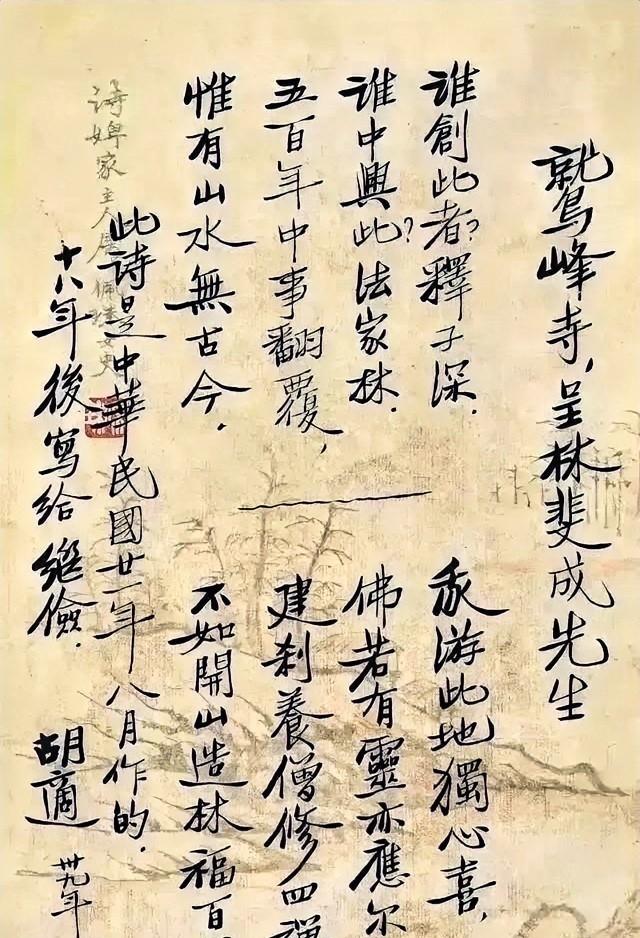 鷲峰寺，呈林斐成先生
誰創此者？釋子深．
誰中興此？法家林．
五百年中事翻覆，
惟有山水無古今．
我游此地獨心喜，
佛若有靈亦應尔
建刹養僧修四
不如開山造林福百
此詩是中華民國廿一年八月作的．
十八年後寫給繼儉．
胡適
卅九年
詩婢家主人